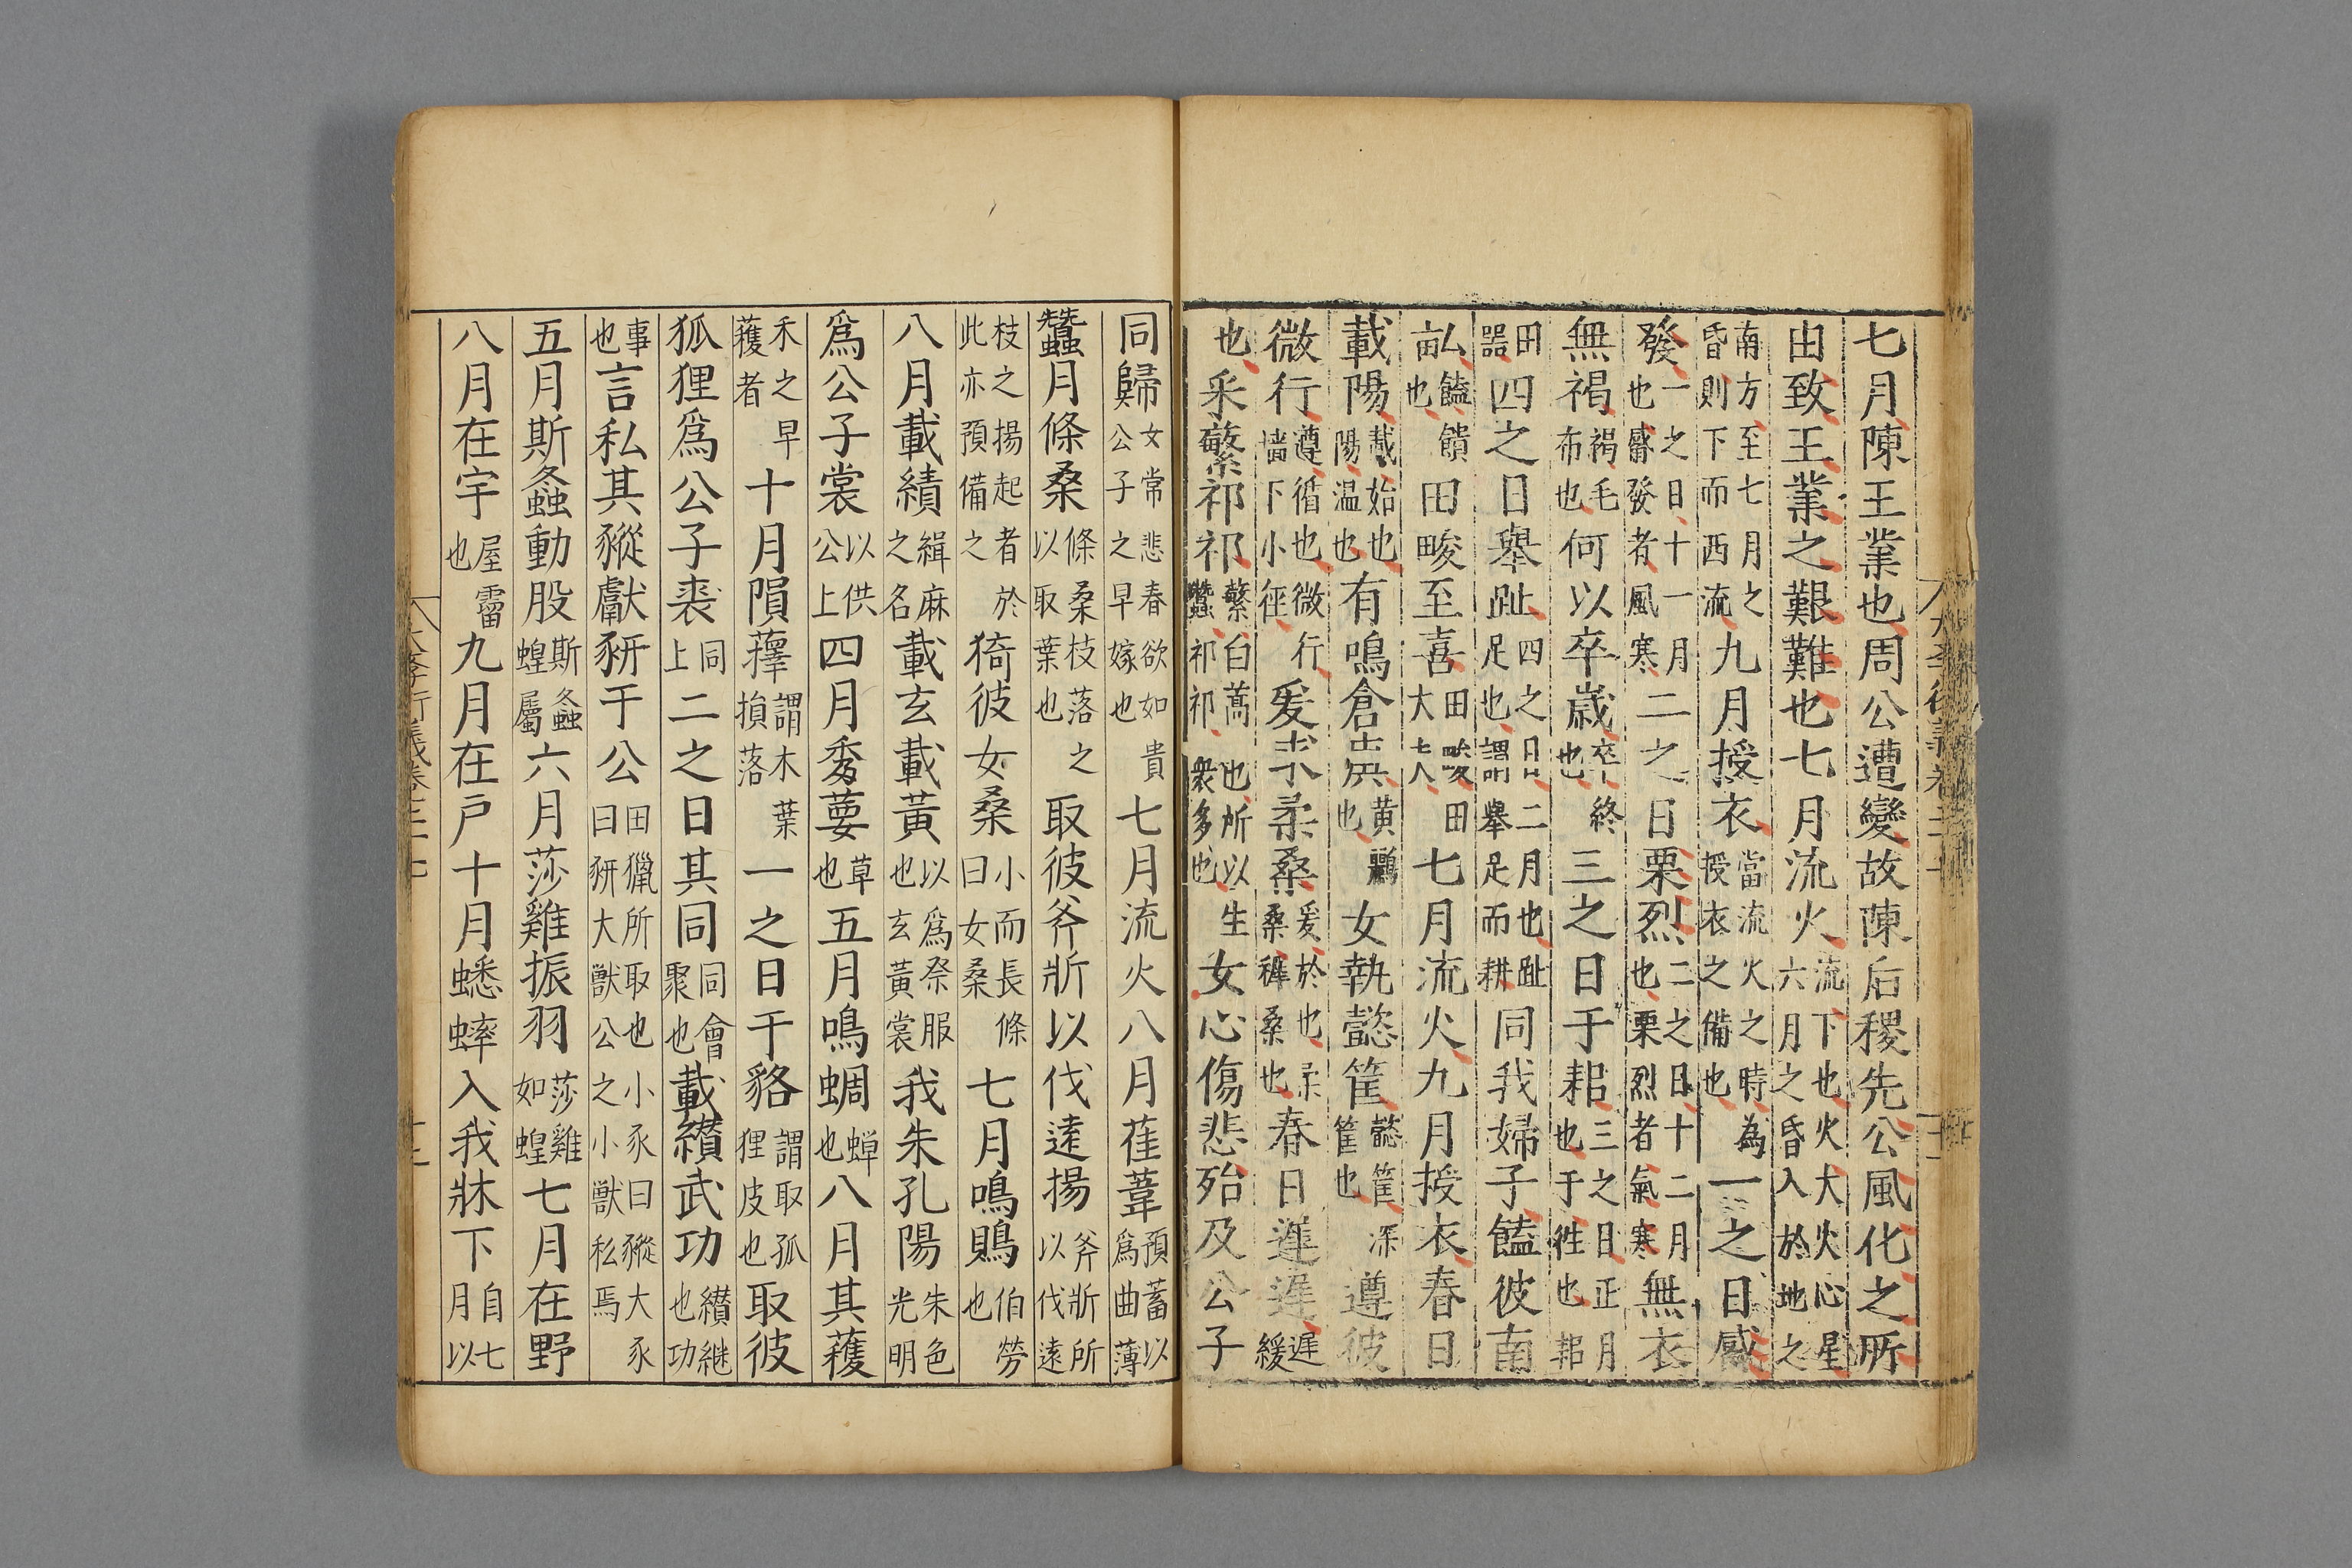 七月陳王業也周公遭變故陳后稷先公風化之所
由致王業之艱難也七月流火流下也火大火心星六月之昏入於地之
南方至七月之昏則下而西流九月授衣當流火之時為授衣之備也一之日觱
發一之日十一月也觱發者風寒二之日栗烈二之日十二月也栗烈者氣寒無衣
無褐褐毛布也何以卒歲卒終也三之日于耜三之日正月也于往也耜
田器四之日舉趾四之日二月也趾足也謂舉足而耕同我婦子饁彼南
畒饁饋也田畯至喜田畯田大夫七月流火九月授衣春日
載陽載始也陽温也有鳴倉庚黄鸝也女執懿筐懿筐深筐也遵彼
微行遵循也微行墻下小徑爰求柔桑爰於也柔桑穉桑也春日遲遲遲緩
也采蘩祁祁蘩白蒿也所以生蠶祁祁衆多也女心傷悲殆及公子
同歸女常悲春欲如貴公子之早嫁也七月流火八月萑葦預蓄以爲曲薄
蠶月條桑條桑枝落之以取葉也取彼斧斨以伐遠揚斧斨所以伐遠
枝之揚起者於此亦預備之猗彼女桑小而長條曰女桑七月鳴鵙伯勞也
八月載績緝麻之名載玄載黃以爲祭服也玄黃裳我朱孔陽朱色光明
爲公子裳以供公上四月秀葽草也五月鳴蜩蟬也八月其蕿
禾之早蕿者十月隕蘀謂木葉損落一之日于貉謂取狐狸皮也取彼
狐狸爲公子裘同上二之日其同同會聚也載纉武功纉継也功
事也言私其豵獻豜于公田獵所取也小豕曰豵大豕曰豜大獸公之小獸私焉
五月斯螽動股斯螽蝗屬六月莎雞振羽莎雞如蝗七月在野
八月在宇屋霤也九月在戸十月蟋蟀入我牀下自七月以